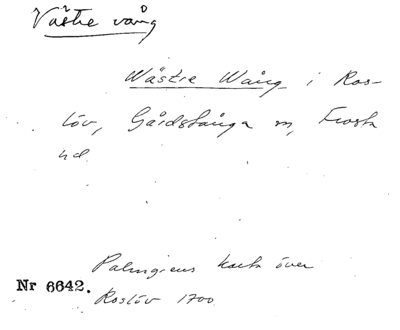 Västre vång
Wästre Wång i Ros-
löv, Gårdstånga sn, Frosta
hd
Palmgrens karta över
Nr 6642.
Roslöv 1700